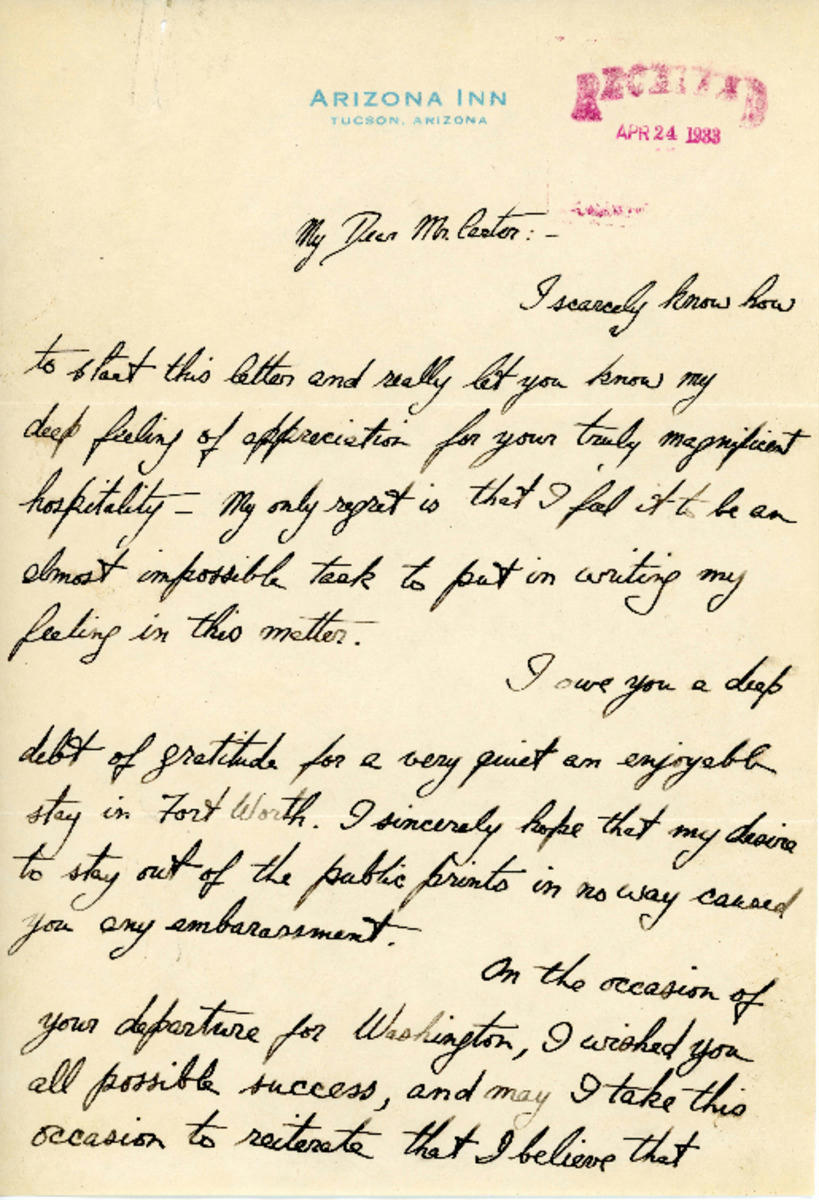 ARIZONA INN
TUCSON, ARIZONA
RECEIVED
APR 24 1933
My Dear Mr. Carter: –
I scarcely know how
to start this letter and really let you know my
deep feeling of appreciation for your truly magnificent
hospitality – My only regret is that I feel it to be an
almost impossible task to put in writing my
feeling in this matter.
I owe you a deep
debt of gratitude for a very quiet an enjoyable
stay in Fort Worth. I sincerely hope that my desire
to stay out of the public prints in no way caused
you any embarassment.
On the occasion of
your departure for Washington, I wished you
all possible success, and may I take this
occasion to reiterate that I believe that